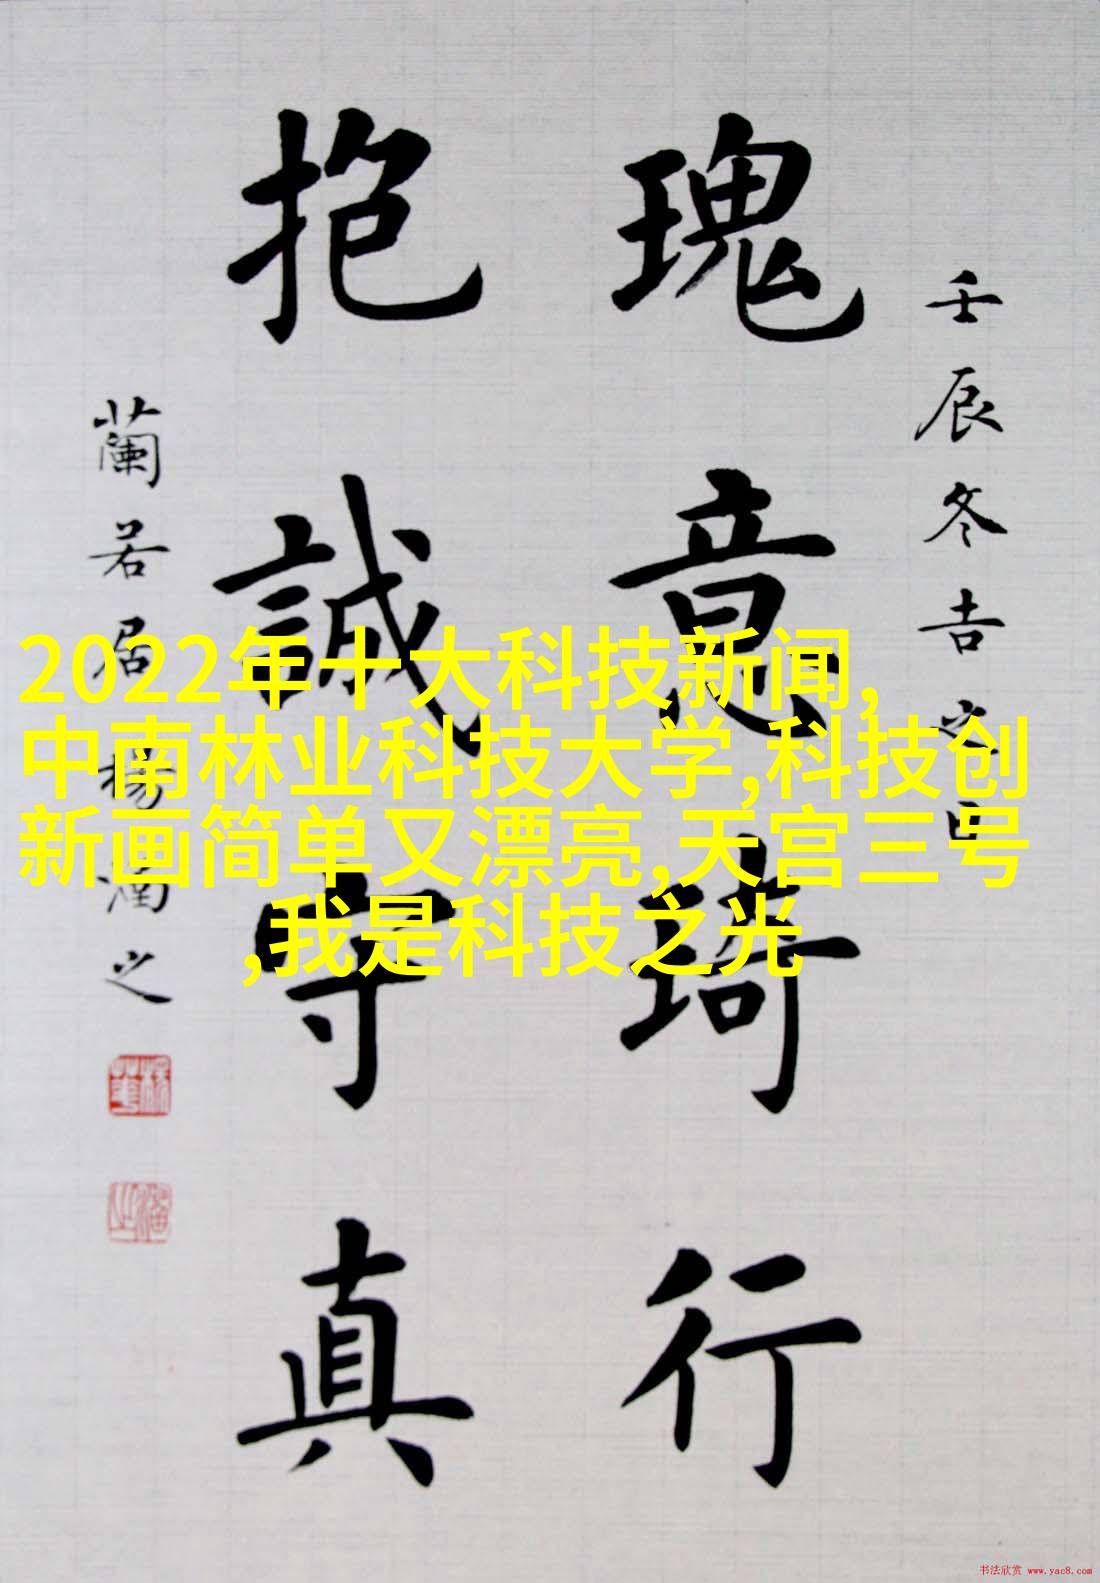 壬辰冬吉之日
瑰意琦行
抱誠守真
蘭若居楊之
2022年十大科技新闻,
中南林业科技大学,科技创
新画简单又漂亮,天宫三号
,我是科技之光
书法欣赏 www.yac8.com